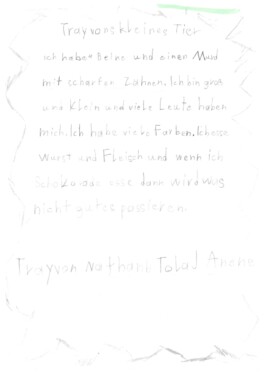 Trayvons kleines Tier
ich habe 4 Beine und einen Mund
mit scharfen Zähnen. Ich bin groß
und klein und viele Leute haben
mich. Ich habe viele Farben. Ich esse
Wurst und Fleisch und wenn ich
Schoko esse dann wird was
nicht gutes passieren.
Trayvon Nathan